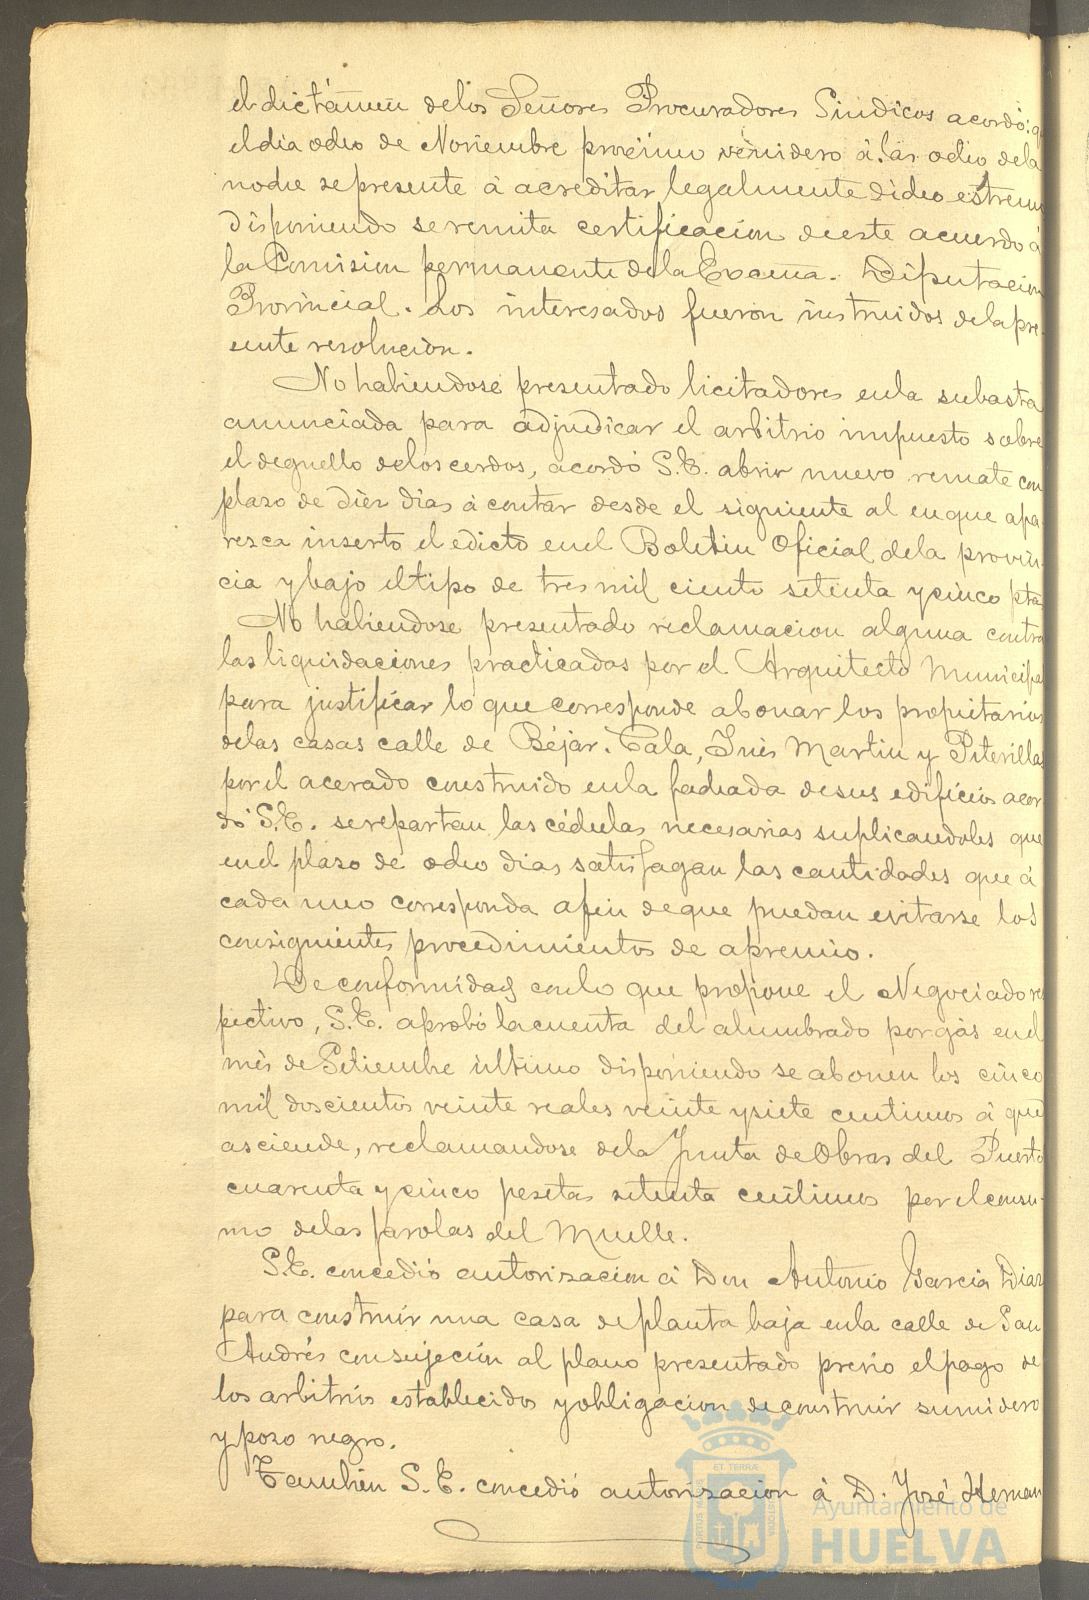 el dictámen delos Señores Procuradores Sindicos acordó: q
el dia ocho de Noviembre procsimo venidero á las ocho dela
noche se presente á acreditar legalmente dicho estremo
disponiendo se remita certificacion de este acuerdo á
la Comision permanente dela Excma. Diputacion
Provincial. Los interesados fueron instruidos dela pre-
sente resolucion.
No habiendose presentado licitadores enla subasta
anunciada para adjudicar el arbitrio impuesto sobre
el deguello delos cerdos, acordó S.E. abrir nuevo remate con
plazo de diez dias á contar desde el siguiente al en que apa-
resca inserto el edicto enel Boletin Oficial dela provin-
cia y bajo el tipo de tres mil ciento setenta y cinco ptas
No habiendose presentado reclamacion alguna contra
las liquidaciones practicadas por el Arquitecto Municipal
para justificar lo que corresponde abonar los propietarios
delas casas calle de Béjar. Cala, Inés Martin y Piterilla
por el acerado construido enla fachada de sus edificios acor-
dó S.E. se repartan las cédulas necesarias suplicandoles que
enel plazo de ocho dias satisfagan las cantidades que á
cada uno corresponda afin de que puedan evitarse los
consiguientes procedimientos de apremio.
De conformidad conlo que propone el Negociado res
pectivo, S.E. aprobó la cuenta del alumbrado por gás enel
mes de Setiembre último disponiendo se abonen los cinco
mil doscientos veinte reales veinte y siete centimos á que
asciende, reclamandose dela Junta de Obras del Puerto
cuarenta y cinco pesetas setenta centimos por el consu-
mo delas farolas del Muelle.
S.E. concedió autorizacion á Don Antonio Garcia Diaz
para construir una casa de planta baja enla calle de San
Andrés con sujeción al plano presentado previo el pago de
los arbitrios establecidos y obligacion de construir sumidero
y pozo negro.
Tambien S.E. concedió autorizacion á D. José Hernan
Ayuntamiento de
HUELVA